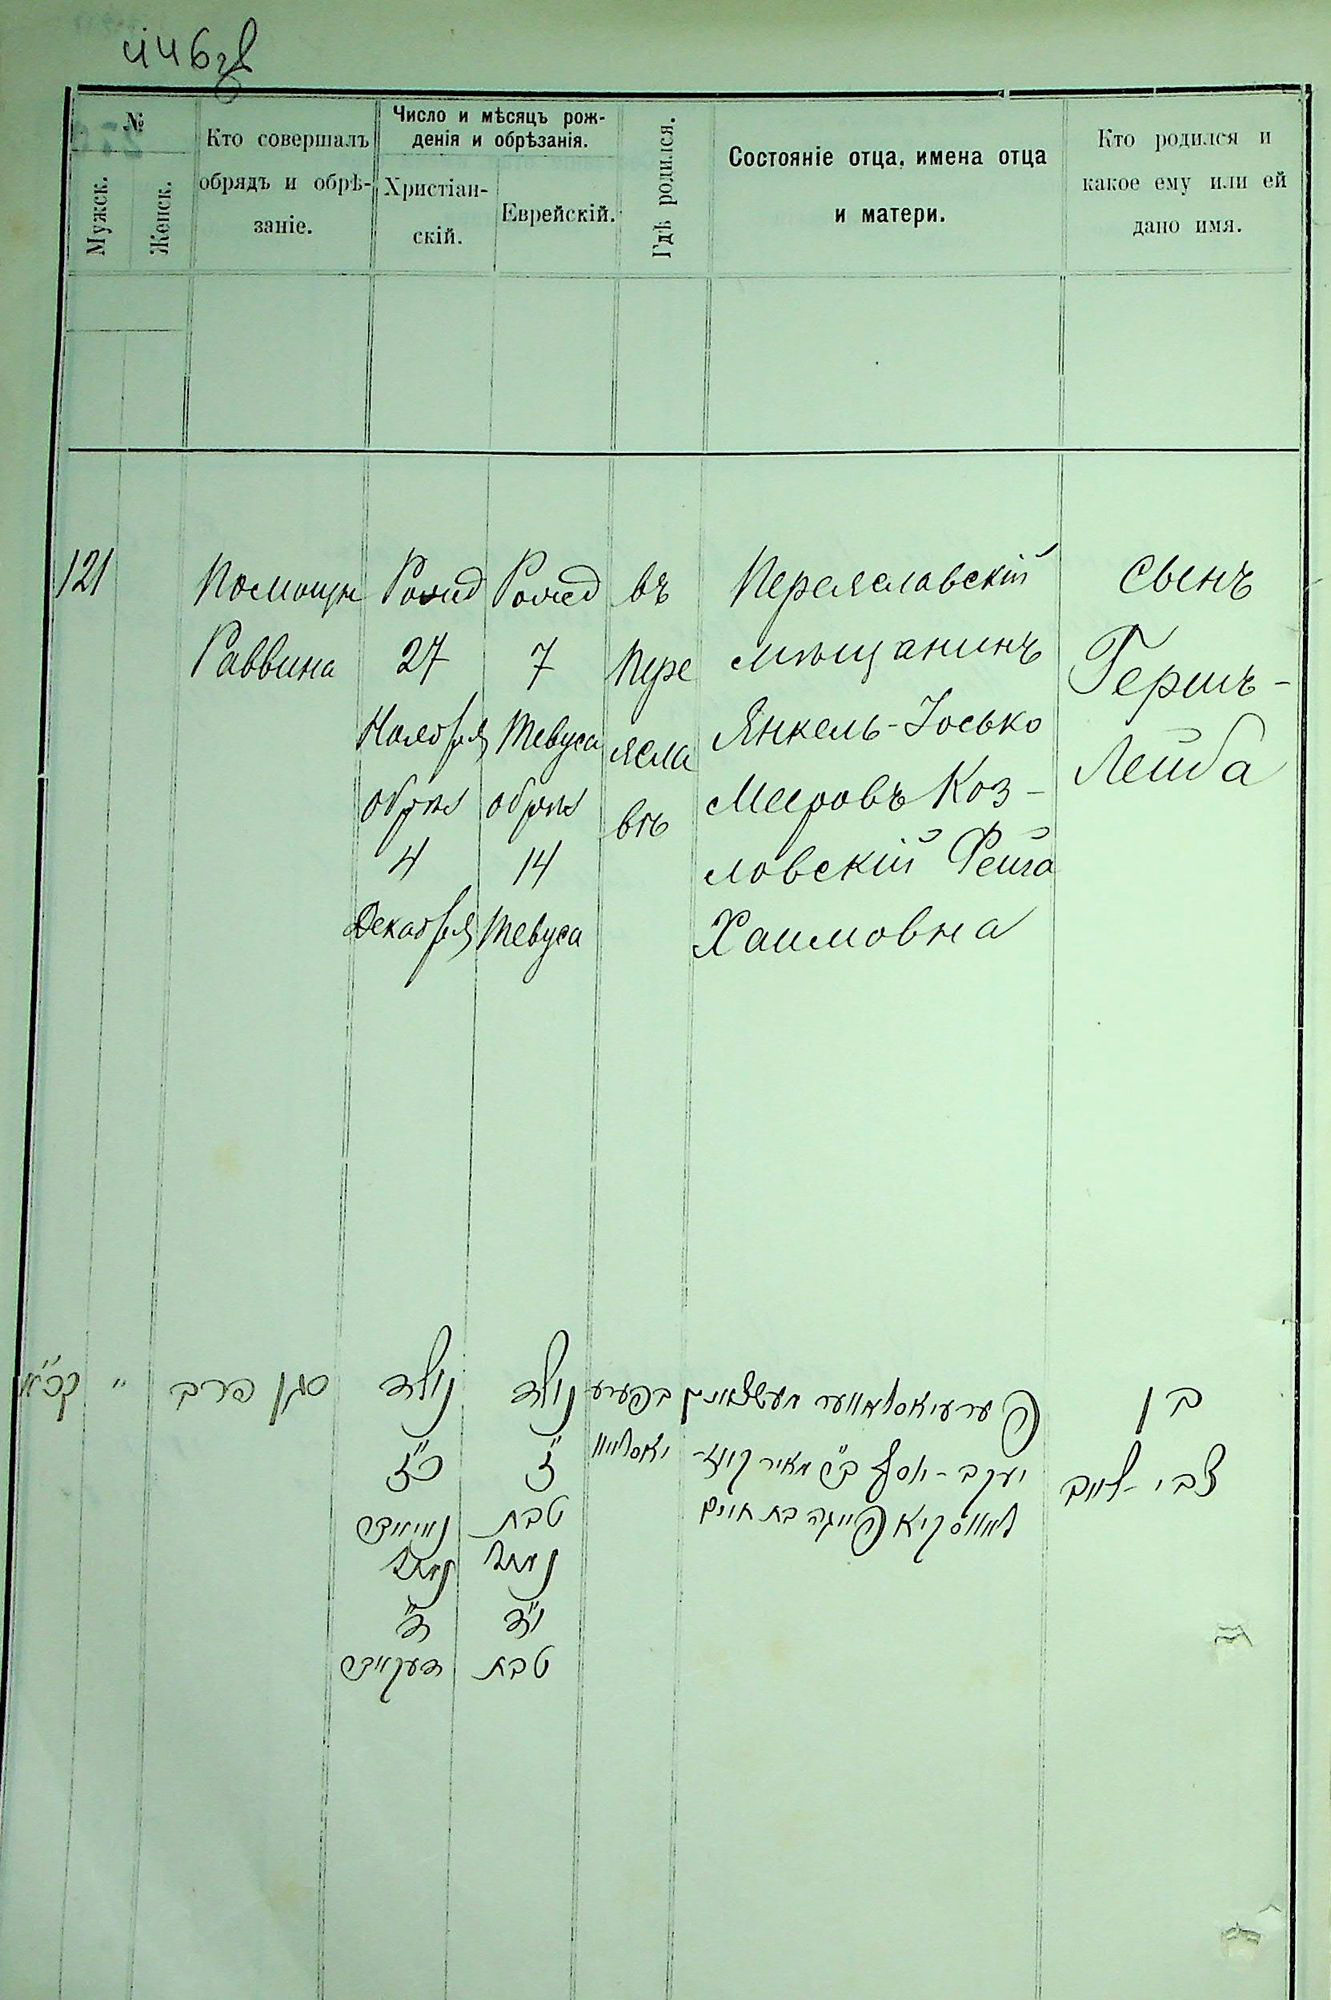 446 зв
№
Мужск.
Женск.
Кто совершалъ
обрядъ и обрѣ-
заніе.
Число и мѣсяцъ рож-
денія и обрѣзанія.
Христіан-
скій.
Еврейскій.
Гдѣ родился.
Состояніе отца, имена отца
и матери.
Кто родился и
какое ему или ей
дано имя.
121
Помощн
Раввина
Рожд
27
Ноября
обрѣз
4
Декабря
Рожд
7
Тевуса
обрѣз
14
Тевуса
въ
Пере
ясла
вѣ
Переяславскій
мѣщанинъ
Янкель-Іосько
Мееровъ Коз-
ловскій Фейга
Хаимовна
сынъ
Гершъ-
Лейба
קכ״א
״
סגן הרב
נולד
כ״ז
נאיאבר
נימול
ד״
דעקאבר
נולד
ז״
טבת
נימול
י״ד
טבת
בפערע
יאסלאוו
פערעיאסלאווער מעשצאנין
יעקב-יוסף ב״ר מאיר קאז-
לאווסקיא פייגה בת חיים
בן
צבי-לייב